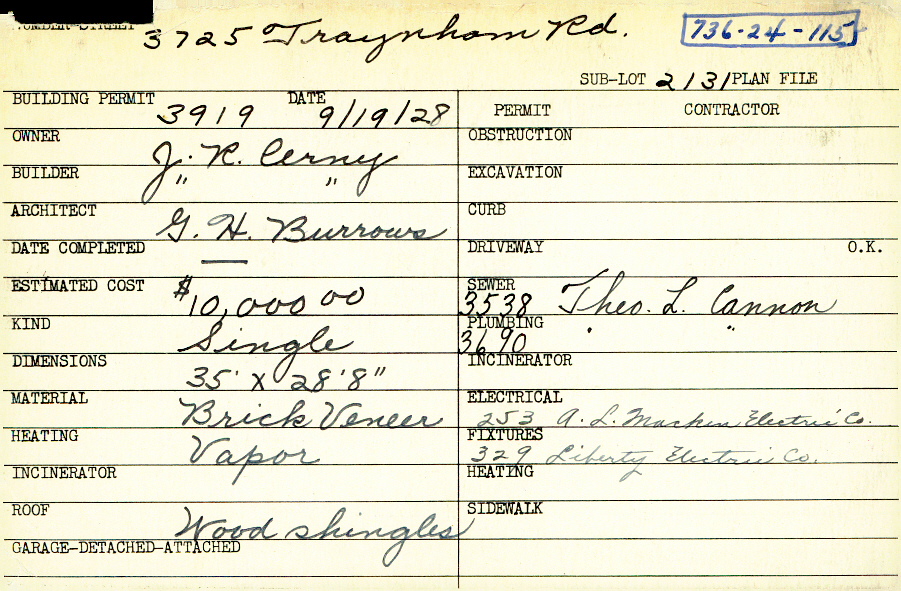 NUMBER-STREET 3725 Traynham Rd. 736-24-115
SUB-LOT 2131 PLAN FILE
BUILDING PERMIT 3919 DATE 9/19/28 PERMIT CONTRACTOR
OWNER J. R. Cerny OBSTRUCTION
BUILDER " " EXCAVATION
ARCHITECT G. H. Burrows CURB
DATE COMPLETED — DRIVEWAY O.K.
ESTIMATED COST $10,000 00 SEWER 3538 Theo. L. Cannon
KIND Single PLUMBING 3690 " "
DIMENSIONS 35' x 28'8" INCINERATOR
MATERIAL Brick Veneer ELECTRICAL 253 A. L. Electric Co.
HEATING Vapor FIXTURES 329 Liberty Electric Co.
INCINERATOR HEATING
ROOF Wood shingles SIDEWALK
GARAGE-DETACHED-ATTACHED